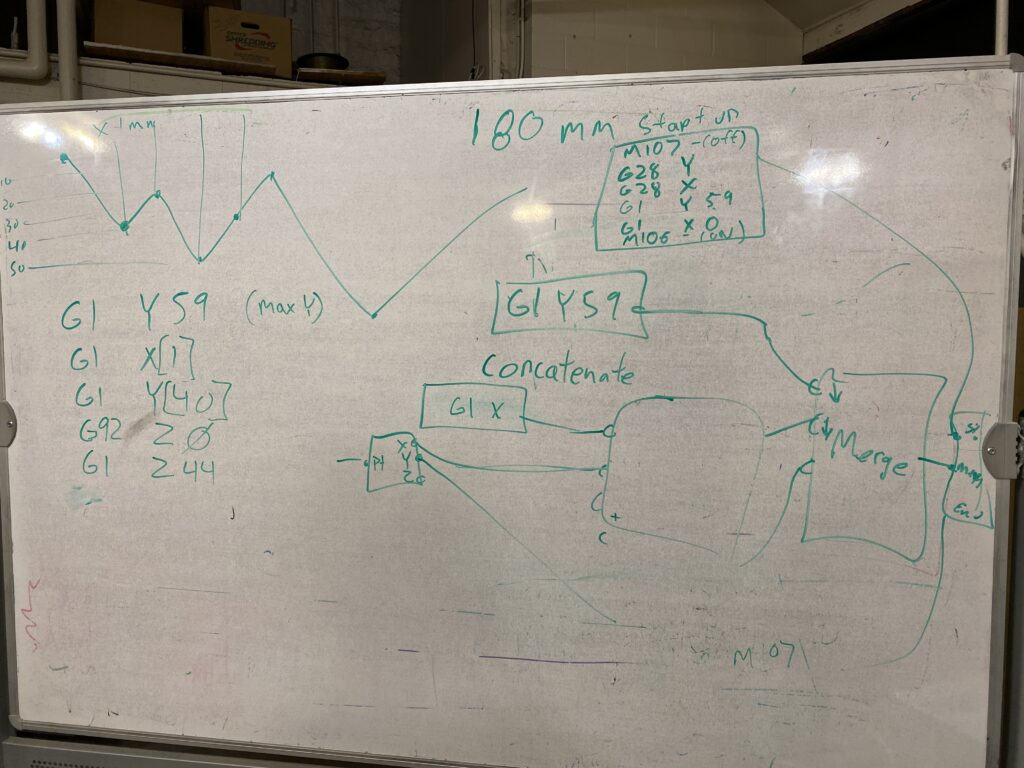 SHREDDING
X 1mm
20
30
40
50
180 mm
Start up
M107 - (Off)
G28 Y
G28 X
G1 Y 59
G1 X 0
M106 - (ON)
G1 Y 59 (max Y)
G1 X[1]
G1 Y[40]
G92 Z Ø
G1 Z 44
G1 Y59
Concatenate
G1 X
Pt
X
Y
Z
+
Merge
M107